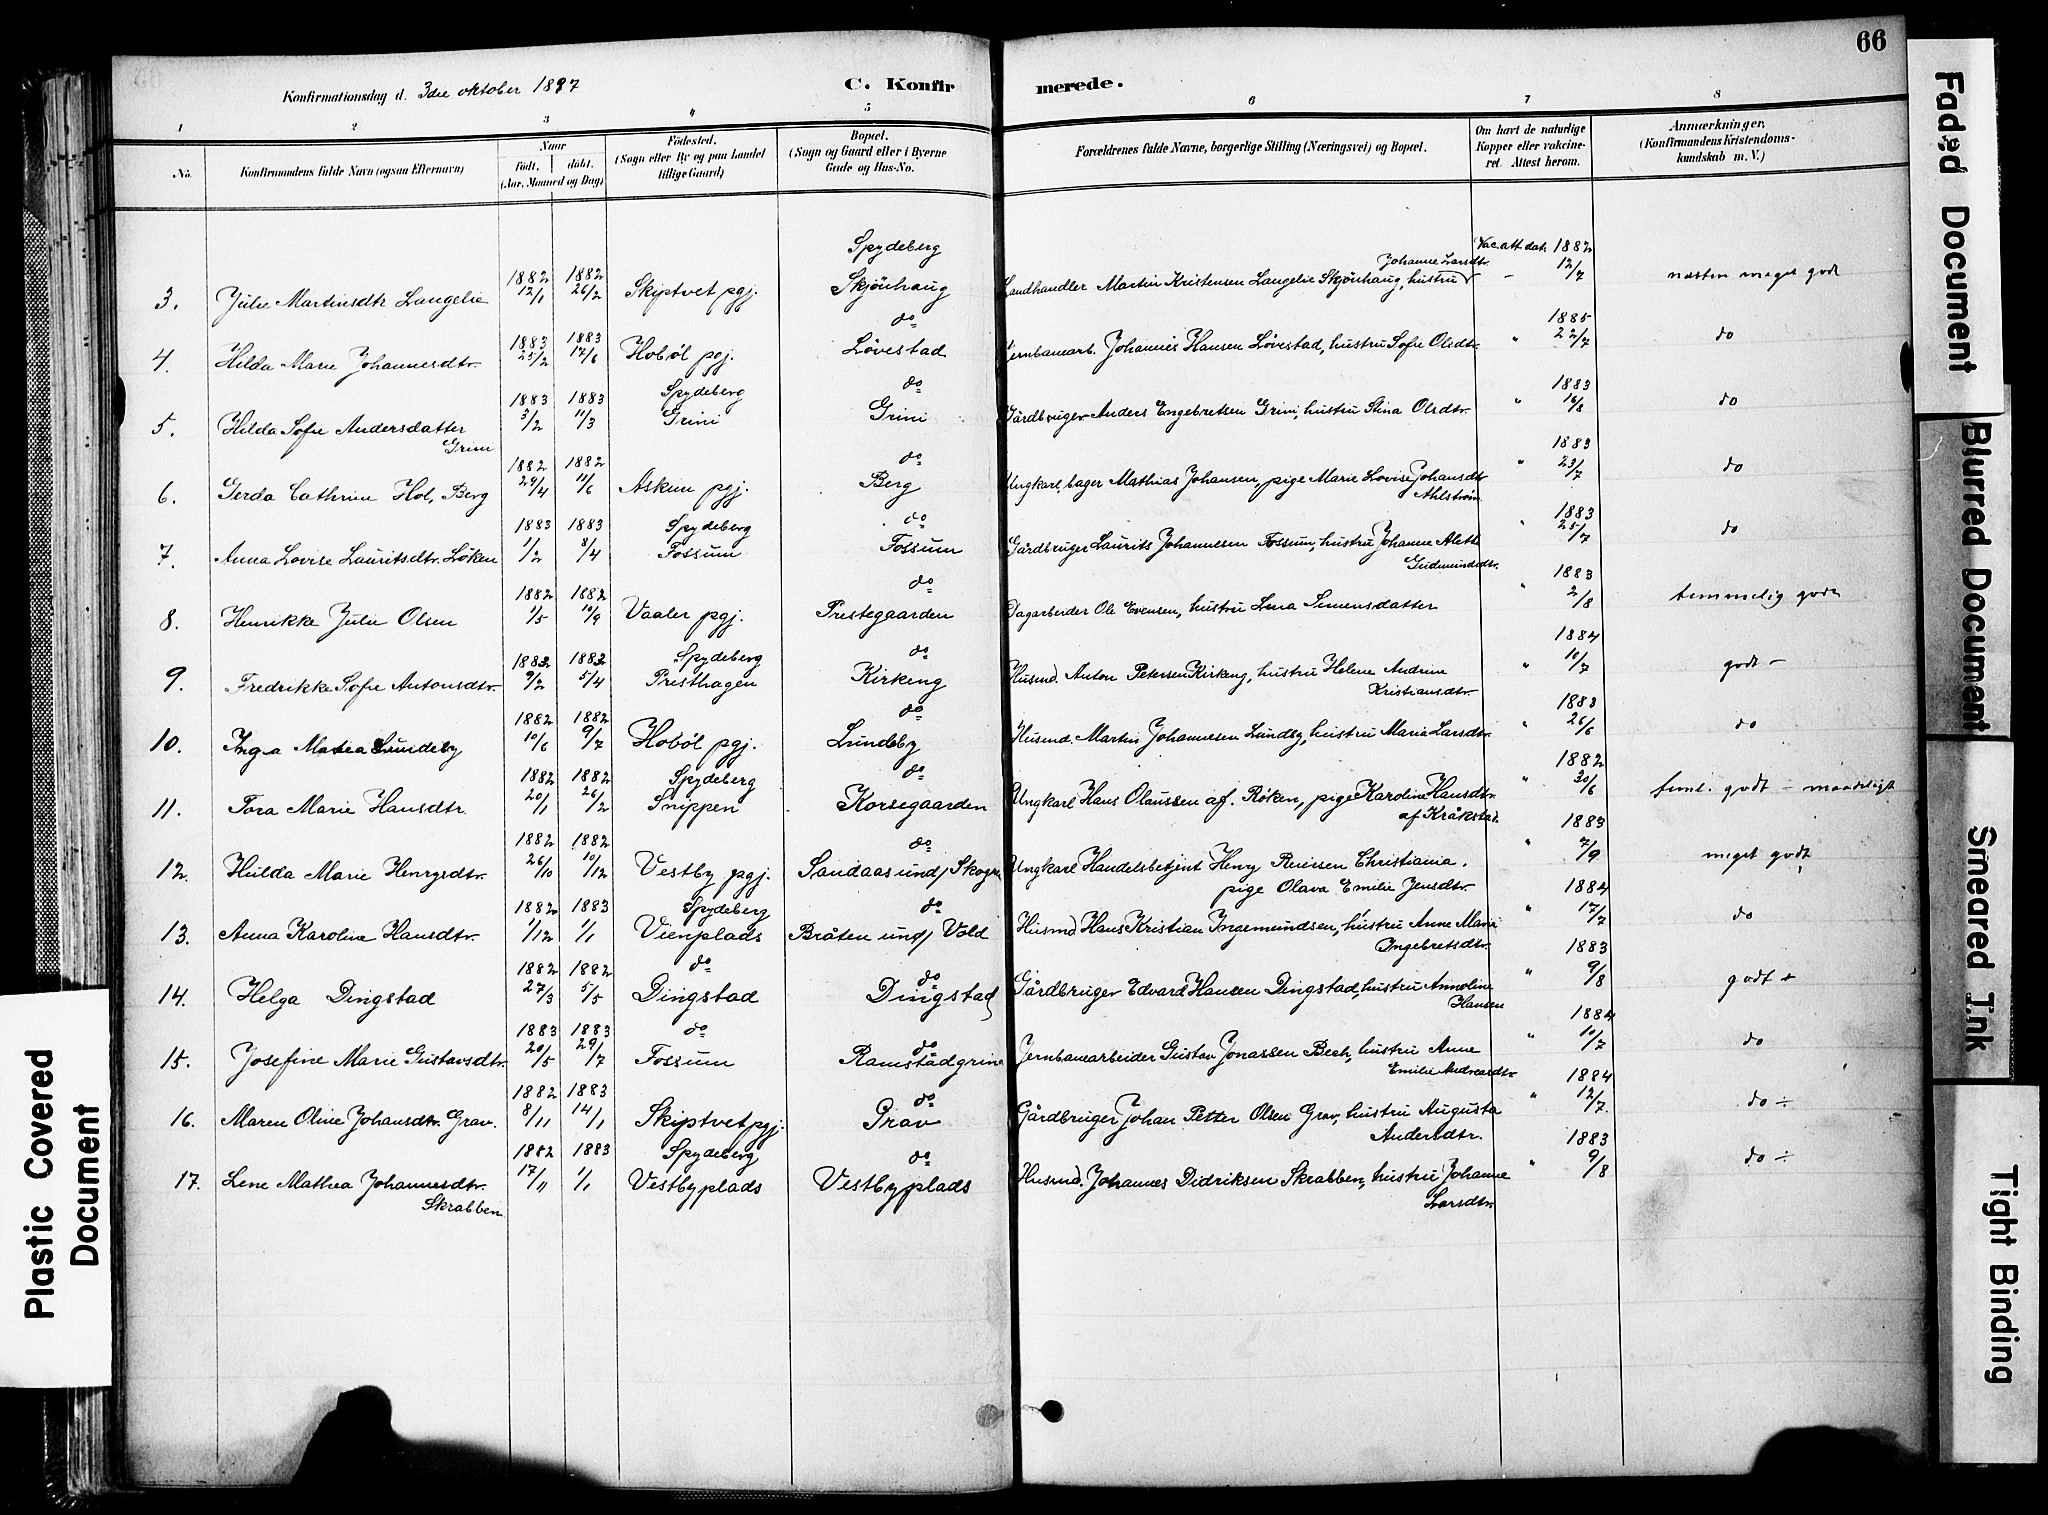 66
Konfirmationsdag d. 3die oktober 1897
C. Konfirmerede.
1 2 3 4 5 6 7 8
No.
Konfirmandens fulde Navn (ogsaa Efternavn)
Naar
født. døbt.
(Aar, Maaned og Dag)
Fødested.
(Sogn eller By og paa Landet
tillige Gaard)
Bopæl.
(Sogn og Gaard eller i Byerne
Gade og Hus-No.
Forældrenes fulde Navne, borgerlige Stilling (Næringsvei) og Bopæl.
Om havt de naturlige
Kopper eller vakcine-
ret. Attest herom.
Anmærkninger.
(Konfirmandens Kristendoms-
kundskab m. V.)
3. Julie Martinsdtr Langelie 1882 12/1 1882 26/2 Skiptvet pgj. Spydeberg Skjønhaug Landhandler Martin Kristensen Langelie Skjønhaug, hustru Johanne Larsdtr. Vac. att. dat. 1882 12/7 næsten meget godt
4. Hilda Marie Johannesdtr. 1883 25/2 1883 17/6 Hobøl pgj. do Løvestad Jernbanearb. Johannes Hansen Løvestad, hustru Sofie Olsdtr. " 1885 22/7 do
5. Hilda Sofie Andersdatter Grini 1883 3/2 1883 11/3 Spydeberg Grini do Grini Gårdbruger Anders Engebretsen Grini, hustru Stina Olsdtr. " 1883 16/8 do
6. Gerda Cathrine Hol, Berg 1882 29/4 1882 11/6 Askim pgj. do Berg Ungkarl, bager Mathias Johansen, pige Marie Lovise Johansdtr Ahlstrøm " 1883 23/7 do
7. Anna Lovise Lauritsdtr. Løken 1883 1/2 1883 8/4 Spydeberg Fossum do Fossum Gårdbruger Laurits Johannesen Fossum, hustru Johanne Alette Gudmundsdtr. " 1883 25/7 do
8. Henrikke Julie Olsen 1882 1/5 1882 10/9 Vaaler pgj. do Prestegaarden Dagarbeider Ole Evensen, hustru Lina Simensdatter " 1883 2/8 temmelig godt
9. Fredrikke Sofie Antonsdtr. 1882 9/2 1882 5/4 Spydeberg Presthagen do Kirkeng Husmd. Anton Petersen Kirkeng, hustru Helene Andrine Kristiansdtr. " 1884 10/7 godt -
10. Inga Matea Lundeby 1882 10/6 1882 9/7 Hobøl pgj. do Lundeby Husmd. Martin Johannesen Lundby, hustru Maria Larsdtr. " 1883 26/6 do
11. Tora Marie Hansdtr. 1882 20/1 1882 26/2 Spydeberg Snippen do Korsegaarden Ungkarl Hans Olaussen af Røken, pige Karoline Hansdtr. af Kråkstad. " 1882 30/6 teml. godt - maadeligt
12. Hulda Marie Henrysdtr. 1882 26/10 1882 10/12 Vestby pgj. do Sandaas und/ Skogru Ungkarl Handelsbetjent Henry Reiersen Christiania. pige Olava Emilie Jensdtr. " 1883 7/9 meget godt
13. Anna Karoline Hansdtr. 1882 1/12 1883 1/1 Spydeberg Vienplads do Bråten und/ Vold Husmd Hans Kristian Ingemundsen, hustru Anne Marie Ingebretsdtr. " 1884 17/7 do
14. Helga Dingstad 1882 27/3 1882 5/5 do Dingstad do Dingstad Gårdbruger Edvard Hansen Dingstad, hustru Annoline Hansen " 1883 9/8 godt +
15. Josefine Marie Gustavsdtr. 1883 20/5 1883 29/7 do Fossum do Ramstadgrina Jernbanearbeider Gustav Jonassen Bech, hustru Anne Emilie Andreasdtr. " 1884 10/7 do
16. Maren Oline Johansdtr. Grav. 1882 8/11 1883 14/1 Skiptvet pgj. do Grav Gårdbruger Johan Petter Olsen Grav, hustru Augusta Andersdtr. " 1884 12/7 do ÷
17. Lene Mathea Johannesdtr. Skrabben 1882 17/11 1883 1/1 Spydeberg Vestbyplads do Vestbyplads Husmd. Johannes Didriksen Skrabben, hustru Johanne Larsdtr. " 1883 9/8 do ÷
Faded Document
Blurred Document
Smeared Ink
Tight Binding
Plastic Covered
Document